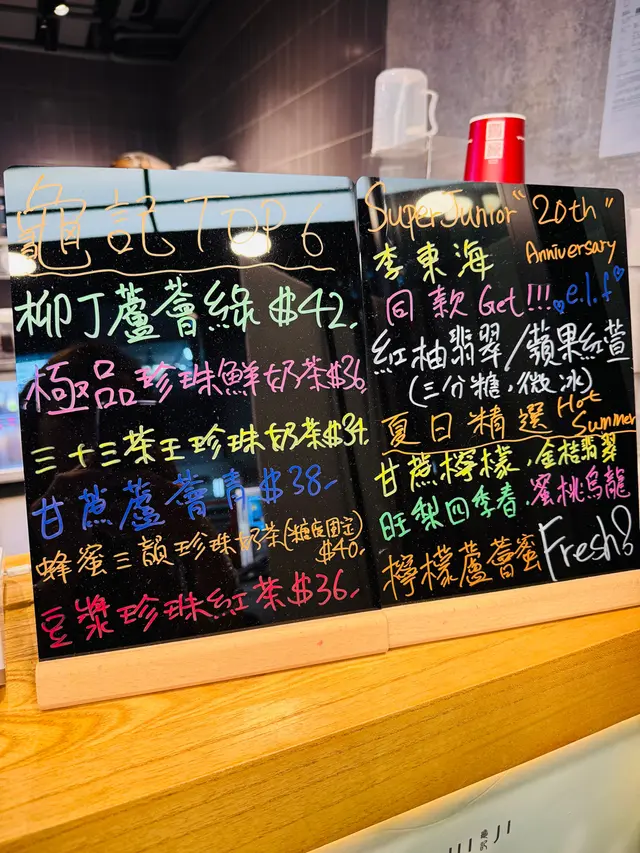 龜記 TOP 6
柳丁蘆薈綠 $42.
極品珍珠鮮奶茶$36
三十三茶王珍珠奶茶$34.
甘蔗蘆薈青$38.
蜂蜜三韻珍珠奶茶(糖度固定)
$40.
豆漿珍珠紅茶$36.
SuperJunior "20th"
李東海 Anniversary
同款Get!!! e.l.f
紅柚翡翠/蘋果紅萱
(三分糖,微冰)
夏日精選 Hot Summer
甘蔗檸檬,金桂翡翠
旺梨四季春.蜜桃烏龍
檸檬蘆薈蜜 Fresh!
JI